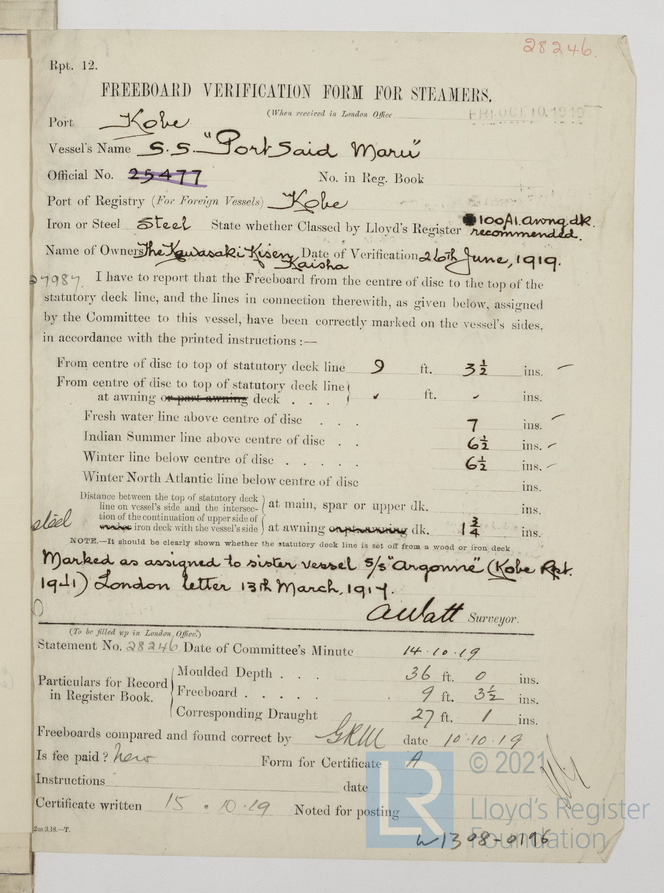 28246.
Rpt. 12.
FREEBOARD VERIFICATION FORM FOR STEAMERS.
(When received in London Office FRI. OCT 10. 1919
Port Kobe
Vessel's Name S.S. "Port Said Maru"
Official No. 25477 No. in Reg. Book
Port of Registry (For Foreign Vessels) Kobe
Iron or Steel Steel State whether Classed by Lloyd's Register 100A1. awng. dk. recommended.
Name of Owners The Kawasaki Kisen Kaisha Date of Verification 26th June, 1919.
27987 I have to report that the Freeboard from the centre of disc to the top of the
statutory deck line, and the lines in connection therewith, as given below, assigned
by the Committee to this vessel, have been correctly marked on the vessel's sides,
in accordance with the printed instructions :—
From centre of disc to top of statutory deck line 9 ft. 3½ ins.
From centre of disc to top of statutory deck line
at awning or part awning deck . . . ft. ins.
Fresh water line above centre of disc . . . 7 ins.
Indian Summer line above centre of disc . . 6½ ins.
Winter line below centre of disc . . . . . 6½ ins.
Winter North Atlantic line below centre of disc ins.
Distance between the top of statutory deck
line on vessel's side and the intersec-
tion of the continuation of upper side of
steel iron deck with the vessel's side
at main, spar or upper dk. ins.
at awning dk. 1¾ ins.
NOTE.—It should be clearly shown whether the statutory deck line is set off from a wood or iron deck
Marked as assigned to sister vessel S/S "Argonne" (Kobe Rpt.
1941) London letter 13th March, 1917.
A Watt Surveyor.
(To be filled up in London Office.)
Statement No. 28246 Date of Committee's Minute 14.10.19
Particulars for Record in Register Book.
Moulded Depth . . . 36 ft. 0 ins.
Freeboard . . . . . 9 ft. 3½ ins.
Corresponding Draught 27 ft. 1 ins.
Freeboards compared and found correct by GRM date 10.10.19
Is fee paid? new Form for Certificate A
Instructions date
Certificate written 15.10.19 Noted for posting
2m 3.18.—T.
© 2021
LR
Lloyd's Register
Foundation
W1398-0196